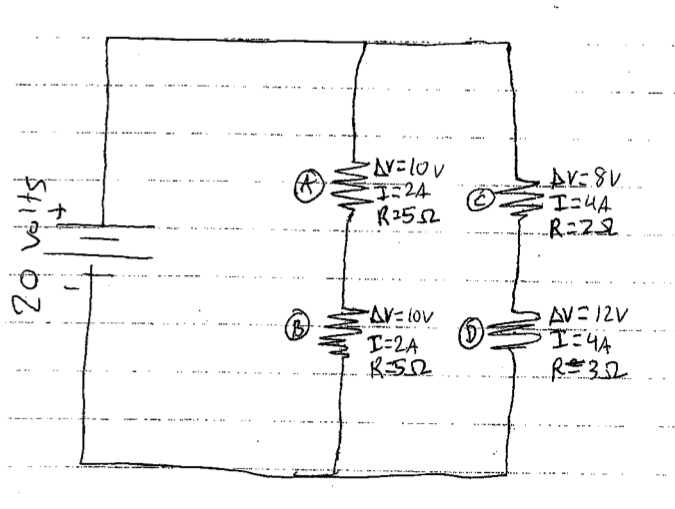 20 volts
+
-
A
ΔV=10V
I=2A
R=5Ω
B
ΔV=10V
I=2A
R=5Ω
C
ΔV=8V
I=4A
R=2Ω
D
ΔV=12V
I=4A
R=3Ω